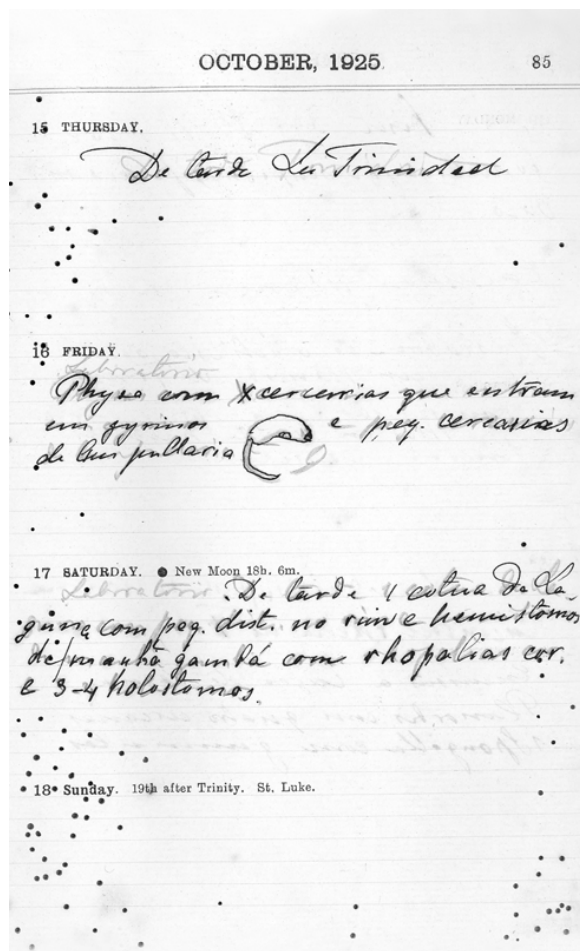 OCTOBER, 1925
85
15 THURSDAY.
De tarde La Trinidad
16 FRIDAY.
Laboratorio
Physa com X cercarias que entram
em gyrinos e peq. cercarias
de Ampullaria
17 SATURDAY. ● New Moon 18h. 6m.
Laboratorio De tarde 1 cotua da La-
guna com peq. dist. no rim e hemistomos
de manhã gambá com rhopalias cor.
e 3-4 holostomos.
18 Sunday. 19th after Trinity. St. Luke.